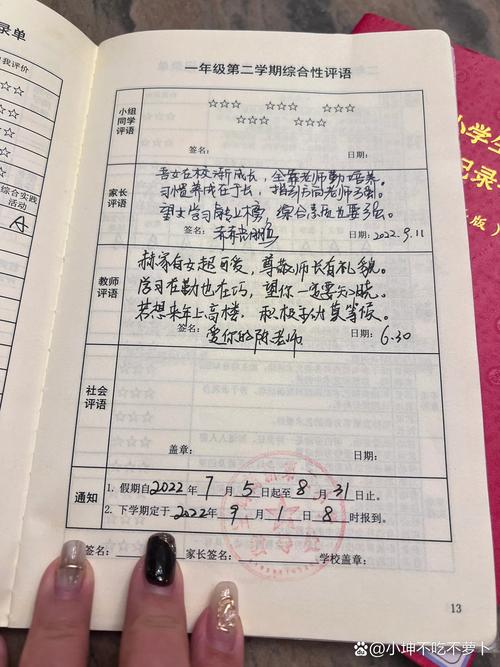 录单
我评价
综合实践
活动
A
一年级第二学期综合性评语
小组
同学
评语
☆☆☆ ☆☆☆ ☆☆☆
☆☆☆ ☆☆☆
签名： 日期：
家长
评语
吾女在校渐成长，全靠老师勤培养。
习惯养成在于长，指引方向老师强。
望女学习能上榜，综合素质也要强。
签名： 日期：2022.9.11
教师
评语
郝家有女超可爱，尊敬师长有礼貌。
学习在勤也在巧，望你一定要知晓。
若想来年上高楼，积极主动莫等候。
签名：爱你的陈老师 日期：6.30
社会
评语
盖章： 日期：
通知
1. 假期自2022年7月5日起至8月31日止。
2. 下学期定于2022年9月1日8时报到。
签名： 家长签名： 学校盖章：
13
小学生
记录
版）
小坤不吃不萝卜